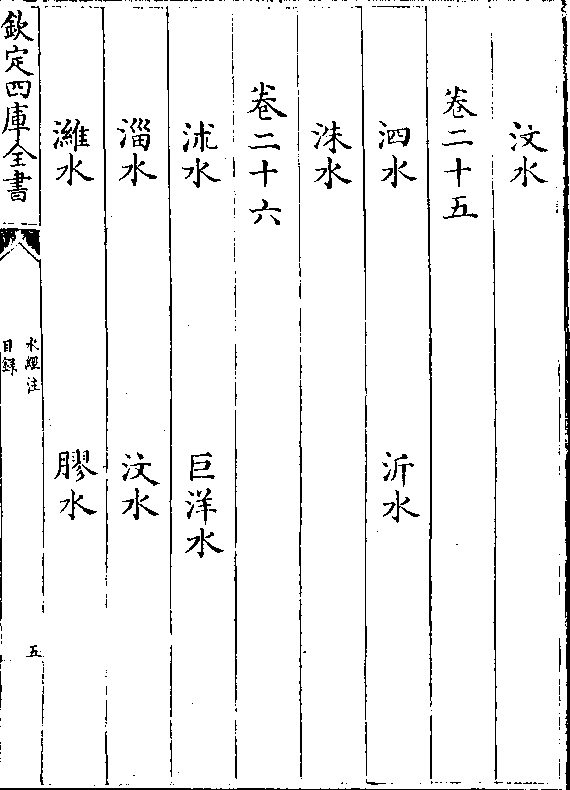 汶水
卷二十五
泗水 沂水
洙水
卷二十六
沭水 巨洋水
淄水 汶水
濰水 膠水
欽定四庫全書
水經注
目錄
五